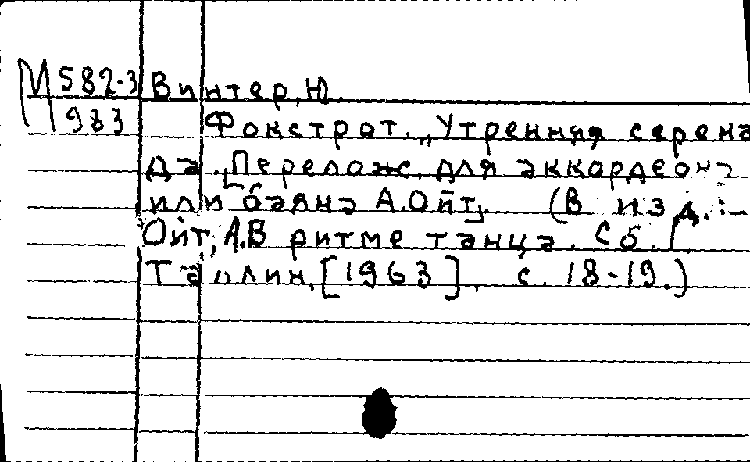 М 582-3 Винтер, Ю.
1963 Фокстрот „Утренняя серена
да. [Перелож. для аккордеона
или баяна А. Ойт]. (В изд.:
Ойт, А. В ритме танца. Сб. 1
Таллин, [1963]. с. 18-19.)